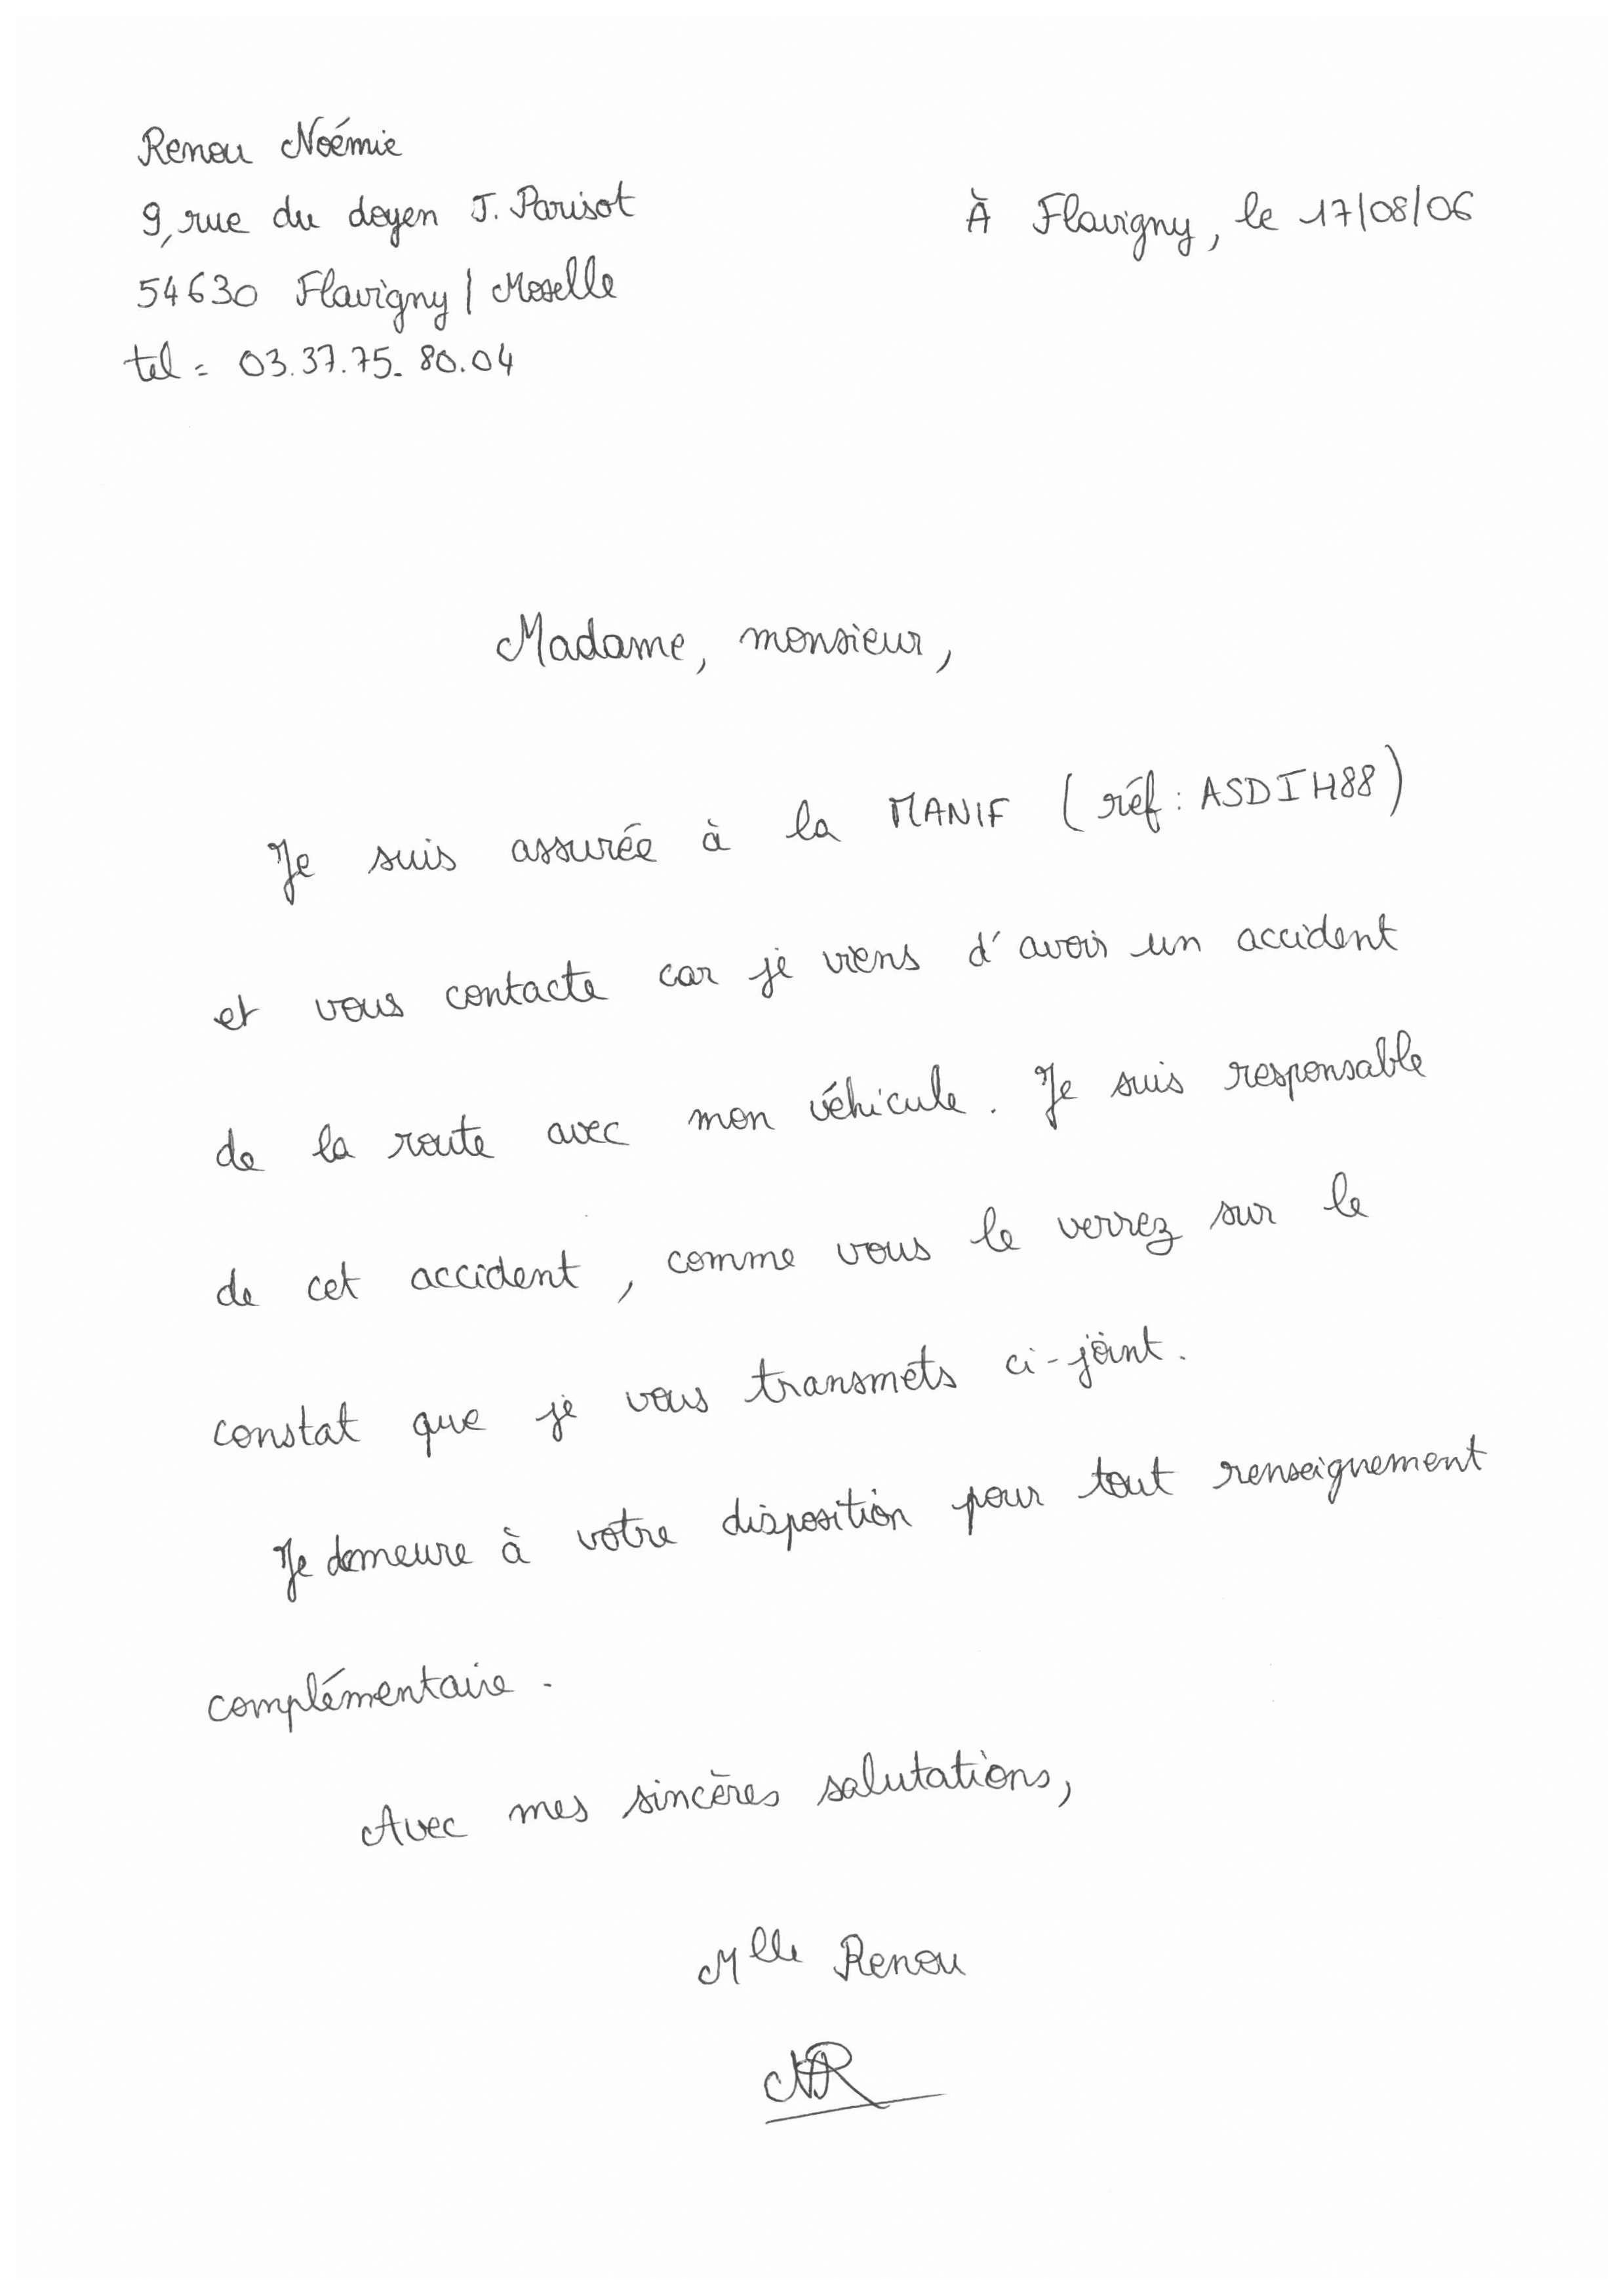 Renou Noémie
9, rue du doyen J. Parisot
À Flavigny, le 17/08/06
54630 Flavigny / Moselle
tel = 03.37.75.80.04
Madame, monsieur,
Je suis assurée à la MANIF (réf : ASDIH88)
et vous contacte car je viens d'avoir un accident
de la route avec mon véhicule. Je suis responsable
de cet accident, comme vous le verrez sur le
constat que je vous transmets ci-joint.
Je demeure à votre disposition pour tout renseignement
complémentaire.
Avec mes sincères salutations,
Mlle Renou
NR